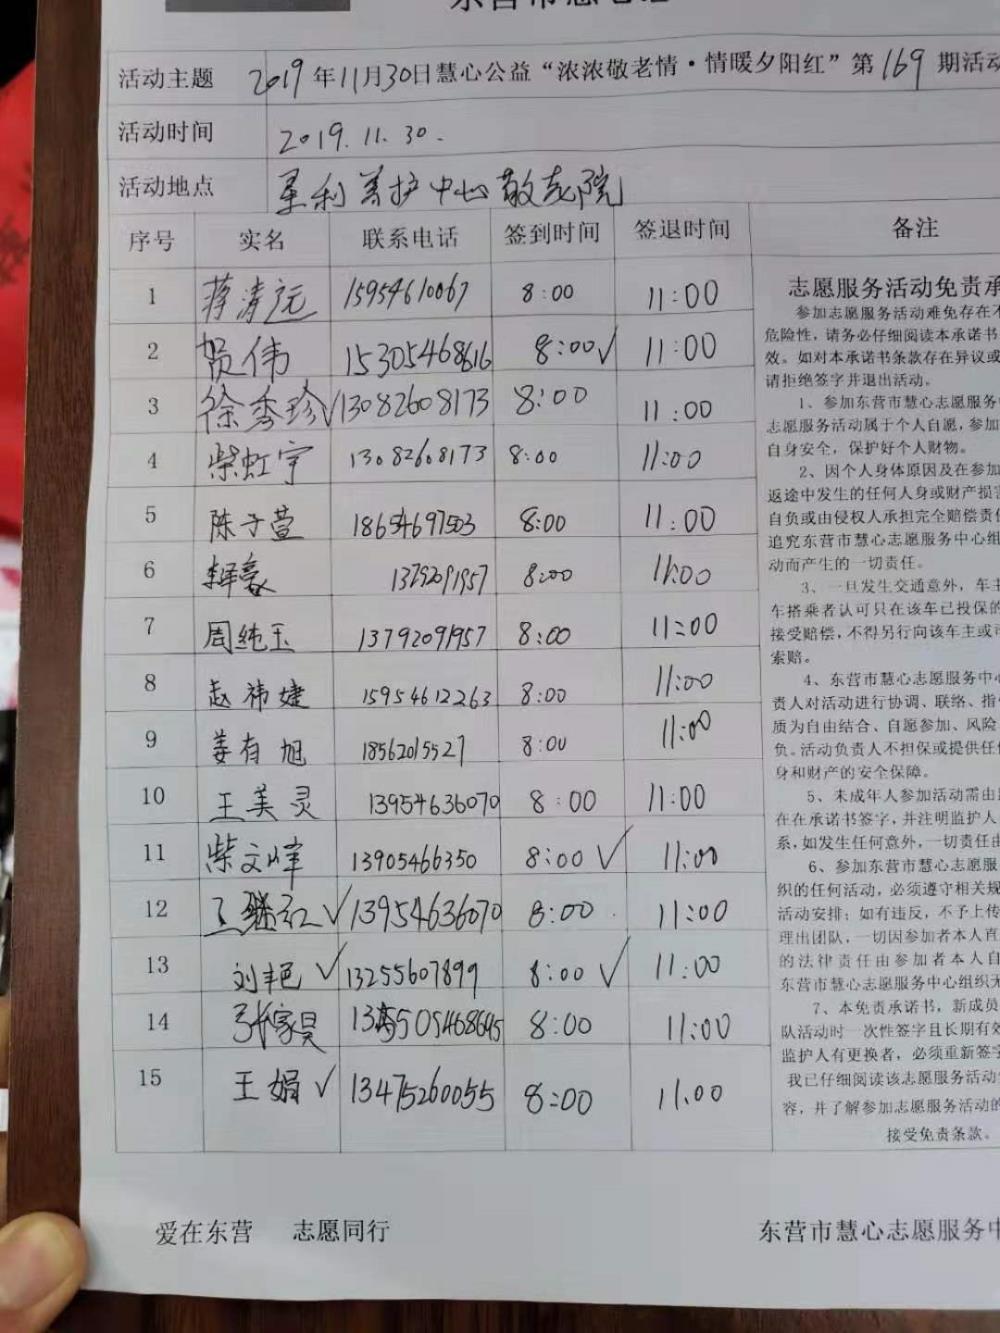 东营市慧心志愿
活动主题 2019年11月30日慧心公益“浓浓敬老情·情暖夕阳红”第169期活动
活动时间 2019.11.30.
活动地点 养护中心敬老院
序号 实名 联系电话 签到时间 签退时间 备注
1 蒋涛远 15954610067 8:00 11:00
2 贺伟 15305468616 8:00√ 11:00
3 徐秀珍√ 13082608173 8:00 11:00
4 柴虹宇 13082608173 8:00 11:00
5 陈子萱 18654697503 8:00 11:00
6 8:00 11:00
7 周纯玉 13792091957 8:00 11:00
8 赵祎婕 15954612263 8:00 11:00
9 姜有旭 18562015527 8:00 11:00
10 王美灵 13954636070 8:00 11:00
11 柴文峰 13905466350 8:00√ 11:00
12 王继红√ 13954636070 8:00 11:00
13 刘艳√ 13255607899 8:00√ 11:00
14 张家昊 8:00 11:00
15 王娟√ 13475260055 8:00 11:00
志愿服务活动免责承
参加志愿服务活动难免存在不
危险性，请务必仔细阅读本承诺书
效。如对本承诺书条款存在异议或
请拒绝签字并退出活动。
1、参加东营市慧心志愿服务
志愿服务活动属于个人自愿，参加
自身安全，保护好个人财物。
2、因个人身体原因及在参加
返途中发生的任何人身或财产损害
自负或由侵权人承担完全赔偿责任
追究东营市慧心志愿服务中心组
动而产生的一切责任。
3、一旦发生交通意外，车主
车搭乘者认可只在该车已投保的
接受赔偿，不得另行向该车主或司
索赔。
4、东营市慧心志愿服务中心
责人对活动进行协调、联络、指
质为自由结合、自愿参加、风险
负。活动负责人不担保或提供任何
身和财产的安全保障。
5、未成年人参加活动需由
在在承诺书签字，并注明监护人
系，如发生任何意外，一切责任由
6、参加东营市慧心志愿服
织的任何活动，必须遵守相关规
活动安排；如有违反，不予上传
理出团队，一切因参加者本人直
的法律责任由参加者本人自
东营市慧心志愿服务中心组织无
7、本免责承诺书，新成员
队活动时一次性签字且长期有效
监护人有更换者，必须重新签字
我已仔细阅读该志愿服务活动
容，并了解参加志愿服务活动的
接受免责条款。
爱在东营 志愿同行 东营市慧心志愿服务中